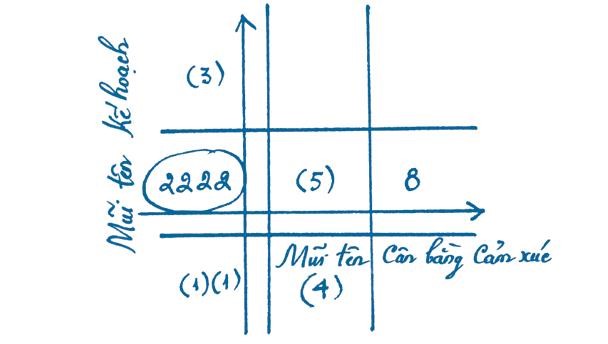 Mũi tên Kế hoạch
(3)
2222 (5) 8
Mũi tên Cân bằng Cảm xúc
(1)(1) (4)